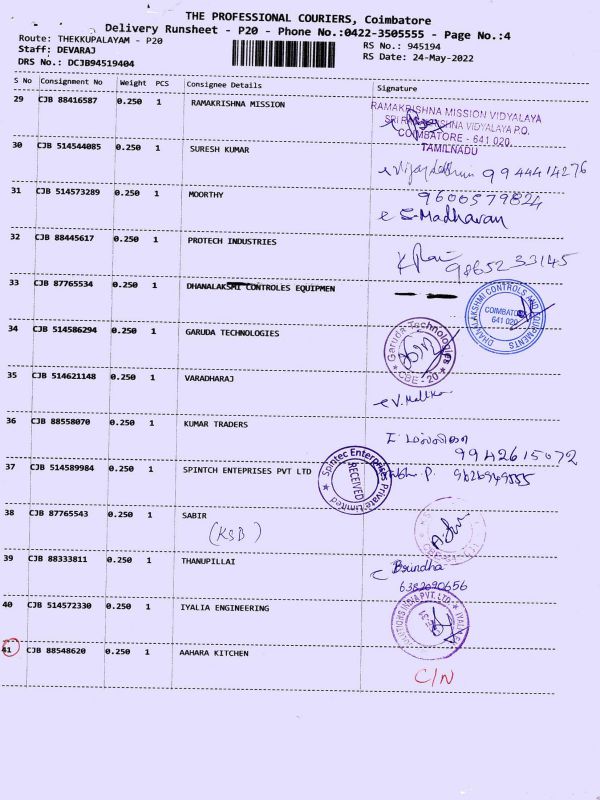 THE PROFESSIONAL COURIERS, Coimbatore
Delivery Runsheet - P20 - Phone No.:0422-3505555 - Page No.:4
Route: THEKKUPALAYAM - P20
RS No.: 945194
Staff: DEVARAJ
RS Date: 24-May-2022
DRS No.: DCJB94519404
S No Consignment No Weight PCS Consignee Details Signature
29 CJB 88416587 0.250 1 RAMAKRISHNA MISSION
RAMAKRISHNA MISSION VIDYALAYA
SRI RAMAKRISHNA VIDYALAYA P.O.
COIMBATORE - 641 020.
TAMILNADU
30 CJB 514544085 0.250 1 SURESH KUMAR
9944414276
31 CJB 514573289 0.250 1 MOORTHY
9600579824
S-Madhavan
32 CJB 88445617 0.250 1 PROTECH INDUSTRIES
9865233145
33 CJB 87765534 0.250 1 DHANALAKSMI CONTROLES EQUIPMEN
DHANALAKSHMI CONTROLS AND EQUIPMENTS
COIMBATORE
641 020
34 CJB 514586294 0.250 1 GARUDA TECHNOLOGIES
Garuda Technologies
CBE - 20
35 CJB 514621148 0.250 1 VARADHARAJ
V. Mallika
36 CJB 88558070 0.250 1 KUMAR TRADERS
9942615072
37 CJB 514589984 0.250 1 SPINTCH ENTEPRISES PVT LTD
Spintec Enterprises Private Limited
RECEIVED
P. 9626949555
38 CJB 87765543 0.250 1 SABIR
(KSB)
39 CJB 88333811 0.250 1 THANUPILLAI
Brindha
6382090656
40 CJB 514572330 0.250 1 IYALIA ENGINEERING
SOLUTIONS INDIA PVT. LTD
41 CJB 88548620 0.250 1 AAHARA KITCHEN
C/N